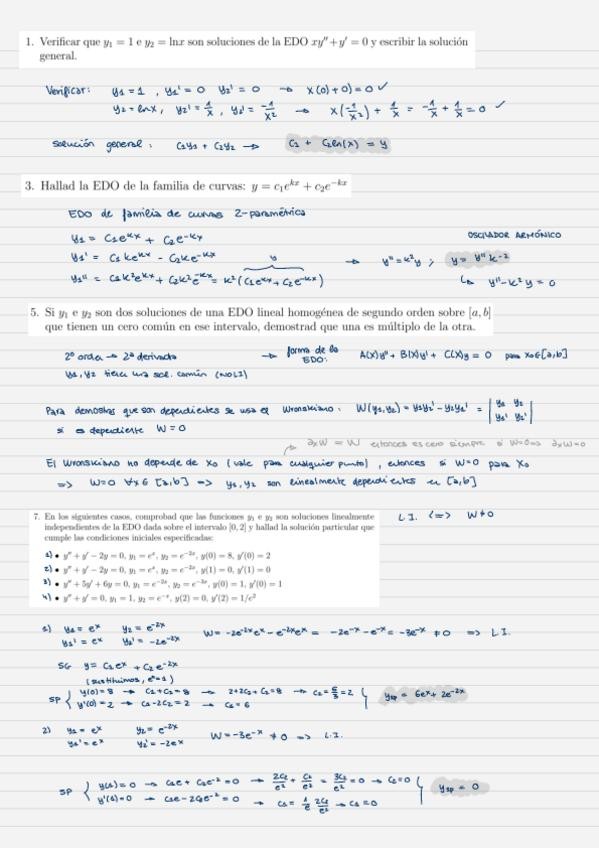 1. Verificar que y₁ = 1 e y₂ = lnx son soluciones de la EDO xy'' + y' = 0 y escribir la solución
general.
Verificar: y₁ = 1 , y₁' = 0 y₂' = 0 → x(0) + 0) = 0 ✓
y₂ = lnx , y₂' = 1/x , y₂' = -1/x² → x(-1/x²) + 1/x = -1/x + 1/x = 0 ✓
solución general : C₁y₁ + C₂y₂ → C₁ + C₂ln(x) = y
3. Hallad la EDO de la familia de curvas: y = c₁e^{kx} + c₂e^{-kx}
EDO de familia de curvas 2-paramétrica
y₁ = C₁e^{kx} + C₂e^{-kx} OSCILADOR ARMÓNICO
y₁' = C₁ke^{kx} - C₂ke^{-kx} y → y'' = k²y ; y = y''k^{-2}
y₁'' = C₁k²e^{kx} + C₂k²e^{-kx} = k²(C₁e^{kx} + C₂e^{-kx}) ↳ y'' - k²y = 0
5. Si y₁ e y₂ son dos soluciones de una EDO lineal homogénea de segundo orden sobre [a, b]
que tienen un cero común en ese intervalo, demostrad que una es múltiplo de la otra.
2º orden → 2ª derivada → forma de la EDO: A(x)y'' + B(x)y' + C(x)y = 0 para x₀∈[a,b]
y₁, y₂ tiene una sol. común (NOLI)
Para demostrar que son dependientes se usa el Wronskiano : W(y₁,y₂) = y₁y₂' - y₂y₁' = |y₁ y₂
y₁' y₂'|
si es dependiente W = 0
∂xW = W entonces es cero siempre si W=0 ⇒ ∂xW=0
El Wronskiano no depende de x₀ (vale para cualquier punto) , entonces si W=0 para x₀
⇒ W=0 ∀x∈[a,b] ⇒ y₁, y₂ son linealmente dependientes en [a,b]
7. En los siguientes casos, comprobad que las funciones y₁ e y₂ son soluciones linealmente
independientes de la EDO dada sobre el intervalo [0, 2] y hallad la solución particular que
cumple las condiciones iniciales especificadas:
L.I. ⇔ W≠0
1) • y'' + y' − 2y = 0, y₁ = eˣ, y₂ = e^{−2x}, y(0) = 8, y'(0) = 2
2) • y'' + y' − 2y = 0, y₁ = eˣ, y₂ = e^{−2x}, y(1) = 0, y'(1) = 0
3) • y'' + 5y' + 6y = 0, y₁ = e^{−2x}, y₂ = e^{−3x}, y(0) = 1, y'(0) = 1
4) • y'' + y' = 0, y₁ = 1, y₂ = e^{−x}, y(2) = 0, y'(2) = 1/e²
1) y₁ = eˣ y₂ = e^{-2x} W = -2e^{-2x}eˣ - e^{-2x}eˣ = -2e^{-x} - e^{-x} = -3e^{-x} ≠ 0 ⇒ L.I.
y₁' = eˣ y₂' = -2e^{-2x}
SG y = C₁eˣ + C₂e^{-2x}
(sustituimos, e⁰=1)
SP { y(0) = 8 → C₁+C₂ = 8 → 2+2C₂+C₂ = 8 → C₂ = 6/3 = 2 } y_{sp} = 6eˣ + 2e^{-2x}
y'(0) = 2 → C₁-2C₂ = 2 → C₁ = 6
2) y₁ = eˣ y₂ = e^{-2x} W = -3e^{-x} ≠ 0 ⇒ L.I.
y₁' = eˣ y₂' = -2eˣ
SP { y(1) = 0 → C₁e + C₂e^{-2} = 0 → 2C₂/e² + C₂/e² = 3C₂/e² = 0 → C₂=0 } y_{sp} = 0
y'(1)=0 → C₁e - 2C₂e^{-2} = 0 → C₁ = 1/e 2C₂/e² → C₁ = 0